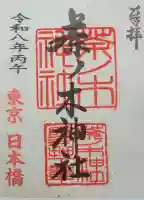 奉拝
茶ノ木神社
令和八年丙午
東京 日本橋